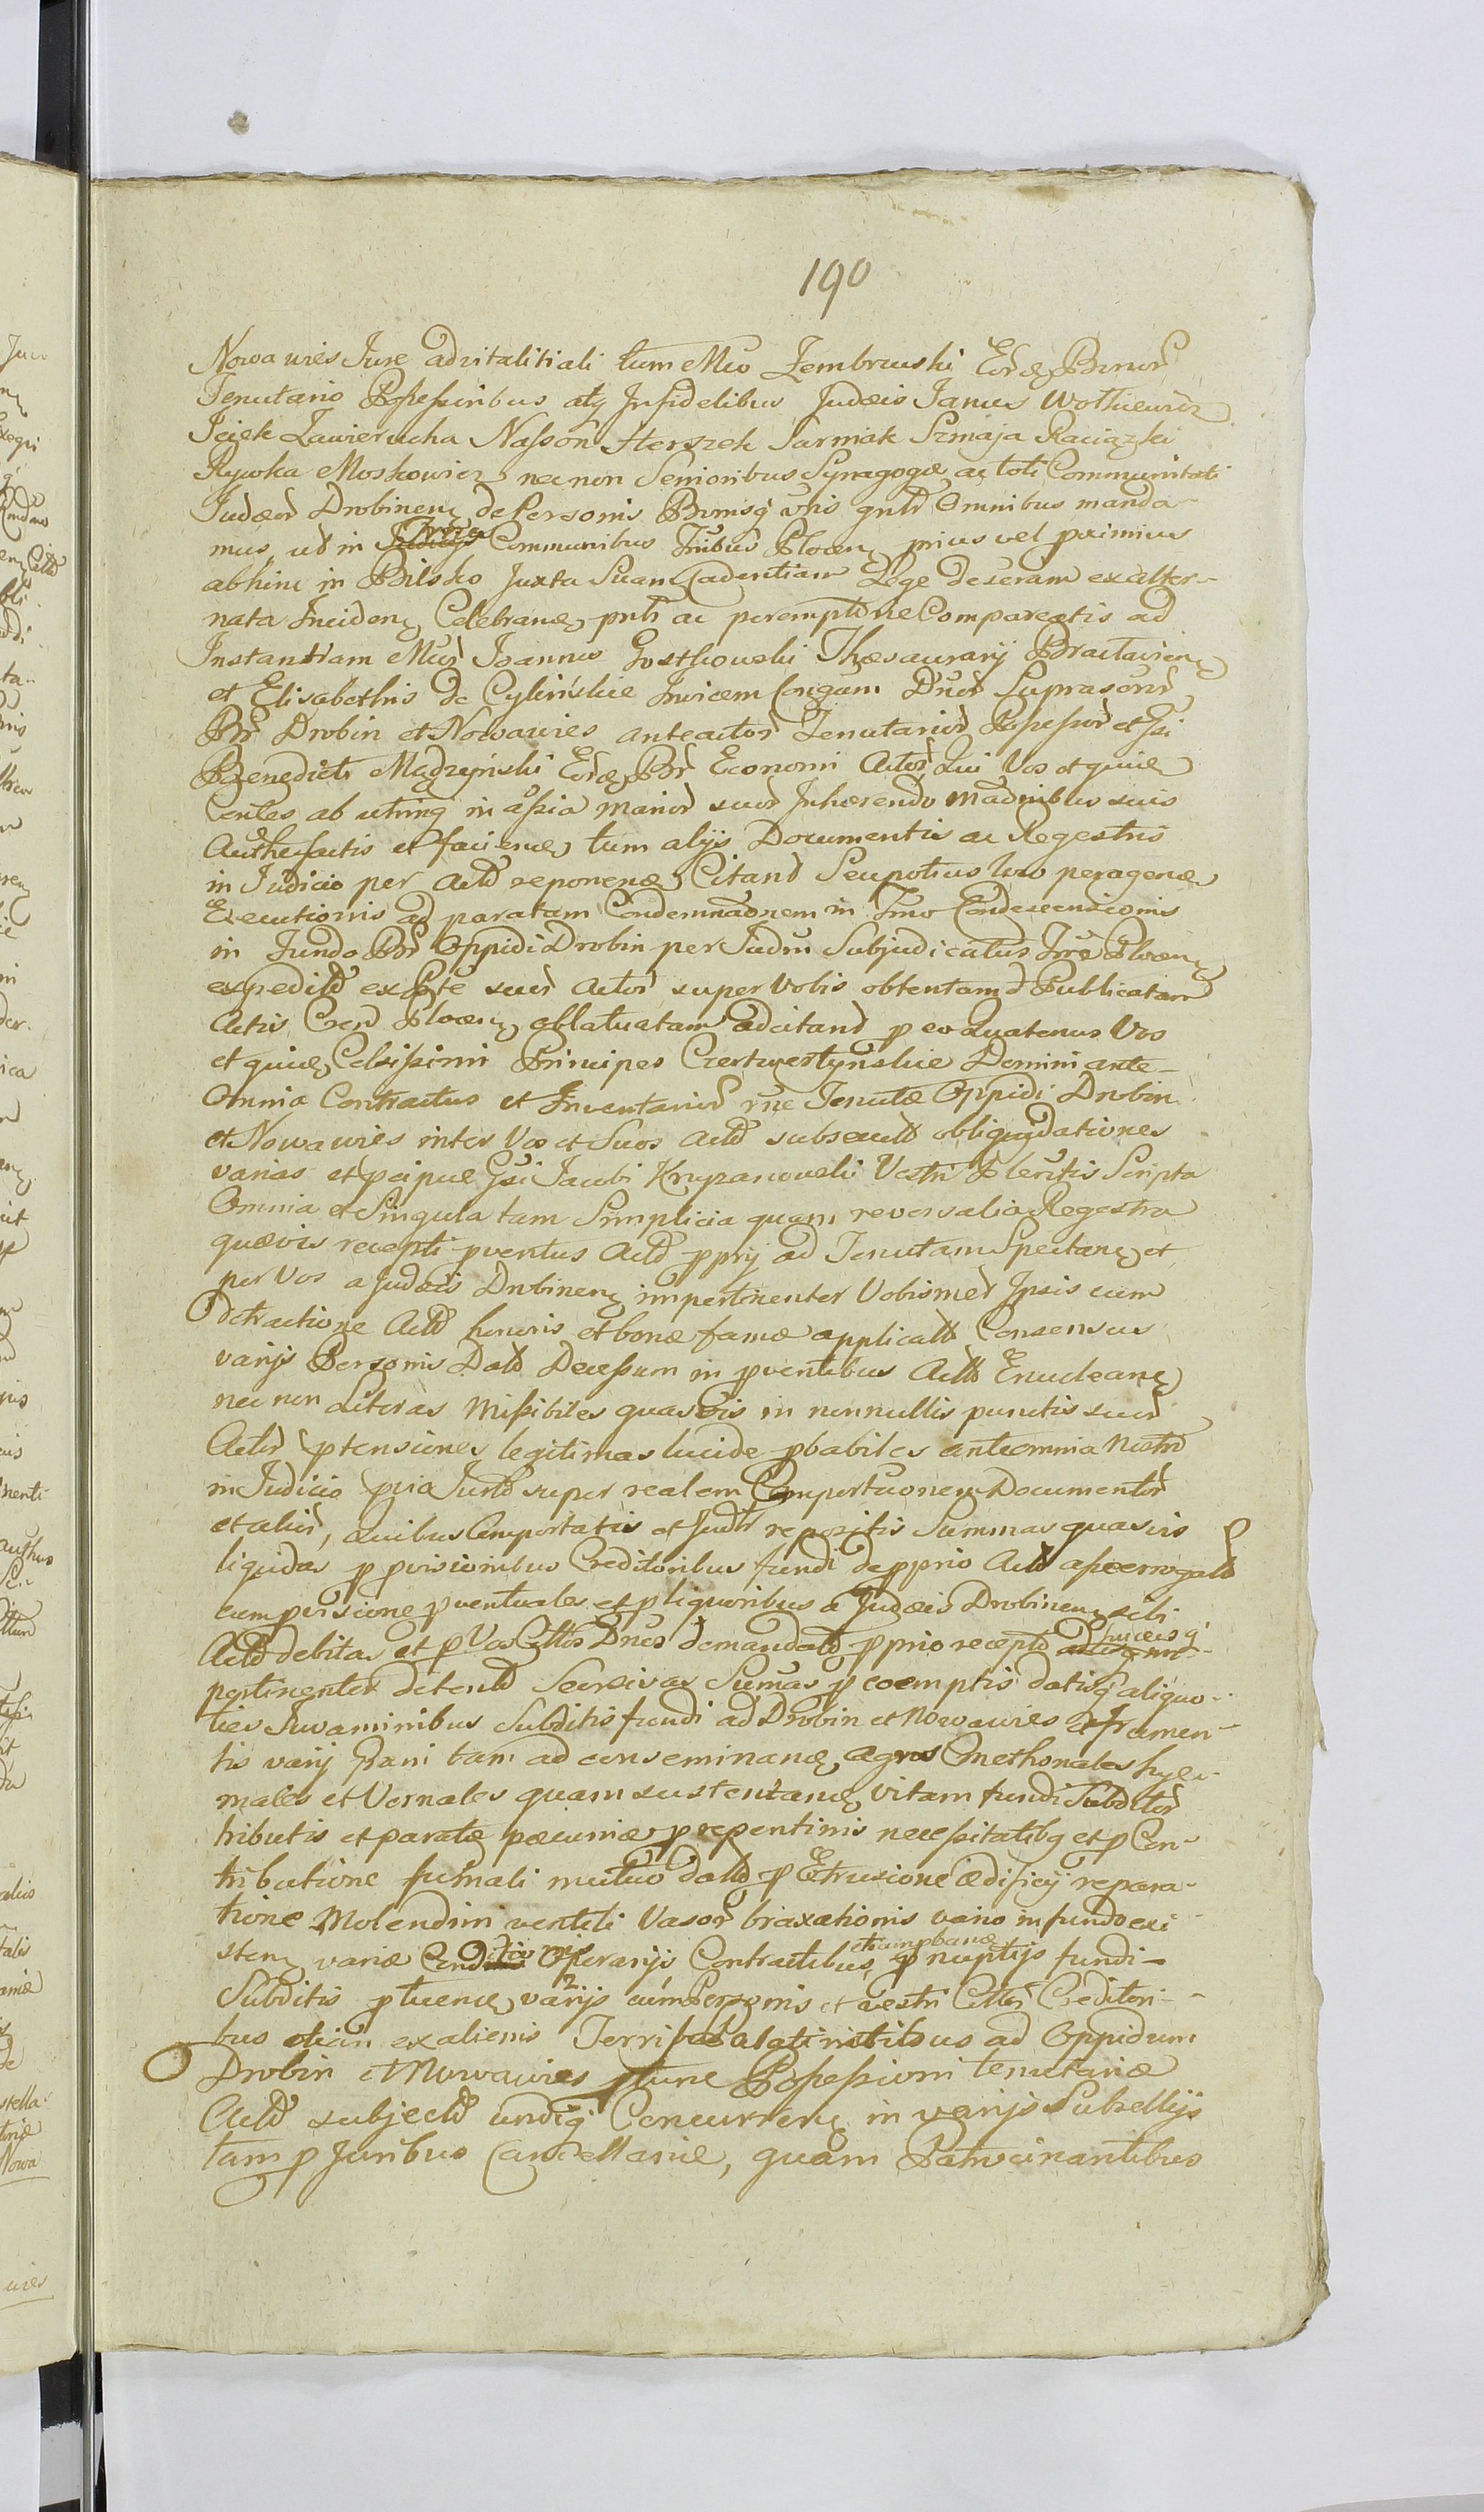 190
Nowawies Jure advitalitiali tum Mco Zembrzuski Eord Bonor
Tenutario Possessoribus atq Infidelibus Judæis Janus Wolkiewicz
Jciek Zawierucha Nasson Herszek Sarniak Szmaja Raciązki
Rywka Moskowicz nec non Senioribus Synagogæ ac toti Communitati
Judæor Drobinen de Personis Bonisq vris gnlr Omnibus manda-
mus, ut in Communibus Tribus Plocen prius vel primius
abhinc in Bilsko Juxta Suam Cadentiam Lege de seram exalter-
nata Inciden Celebran pntr ac peremptorie Compareatis ad
Instantiam Mcor Joannis Gostkowski Thesaurarij Bractavien
et Elisabethis de Cyleńskie Invicem Conjgum Dnor Suprascrir
Br Drobin et Nowawies anteactor Tenutarior Possessor et Gsi
Benedicti Mądrzyński Eord Br Economi Actor Qui Vos et quive
Centes ab utrinq in assia maiior suor Inhærendo Madnibus suis
Authe factis et facien tum alijs Documentis ac Regestris
in Judicio per Actd reponen Citand Seupotius loco peragen
Executionis ad paratam Condemnãonem in Tmo Condescensionis
in Fundo Br Oppidi Drobin per Judm Subjudicatus Trre Plocen
expeditd ex Pte suor Actor super Vobis obtentam et Publicatam
Actis Cren Plocen oblatuatam adcitand p eo Quatenus Vos
et quive Celsissimi Principes Czertwertynskie Domini ante-
Omnia Contractus et Inventarior rne Tenutæ Oppidi Drobin
et Nowawies inter Vos et Suos Actd subsecutd obliquidationes
varias et pcipue Gsi Jacobi Kryzanowski Vestri Plentis Scripta
Omnia et Singula tam Simplicia quam reversalia Regestra
quævis recepti pventus Actd pprij ad Tenutam Spectan et
per Vos a Judæis Drobinen impertinenter Vobismet Ipsis cum
Detractione Actd honoris et bonæ famæ applicatd Consensus
varijs Personis Datd Decessum in pventibus Actd Enuclean
nec non Literas Missibiles quasvis in nonnullis punctis suor
Actor ptensiones legitimas lucide pbabiles anteomnia Nostro
in Judicio pvia Jurtd super realem Comportaonem Documentor
et alior, Quibus Comportatis et Judtr repositis Summas quasvis
liquidas p pvisionibus Creditoribus fundi de pprio Actd asserrogatd
cum pvisione pventuales et p liquoribus a Judæis Drobinen sibi
Actd debitas et p Vos Cittos Dnos demandatd pprio receptd
pertinenter detentd Seorsivas Summas p coemptis datisq aliquo-
ties Juvaminibus Subditis fundi ad Drobin et Nowawies et frumen-
tis varij Grani tam ad conseminan agros Cmethonales hye-
males et Vernales quam sustentan vitam fundi Subditor
tributis et paratæ pecuniæ p repentinis necessitatibq et p Con-
tributione fumali mutuo datd p Extrusione ædificij repara-
tione Molendini ventili Vasor braxationis vario in fundo exi
sten variæ Conditionis Operarijs Contractibus, p nuptijs fundi-
Subditis ptuen varijs cum Personis et vestri Cittor Creditori-
bus etiam exalienis Terris et Palatinatibus ad Oppidum
Drobin et Nowawies ptunc Possessioni tenutariæ
Actd subjectd undiq Concurren in varijs Subsellijs
tam p Juribus Cancellariæ, quam Patrocinantibus